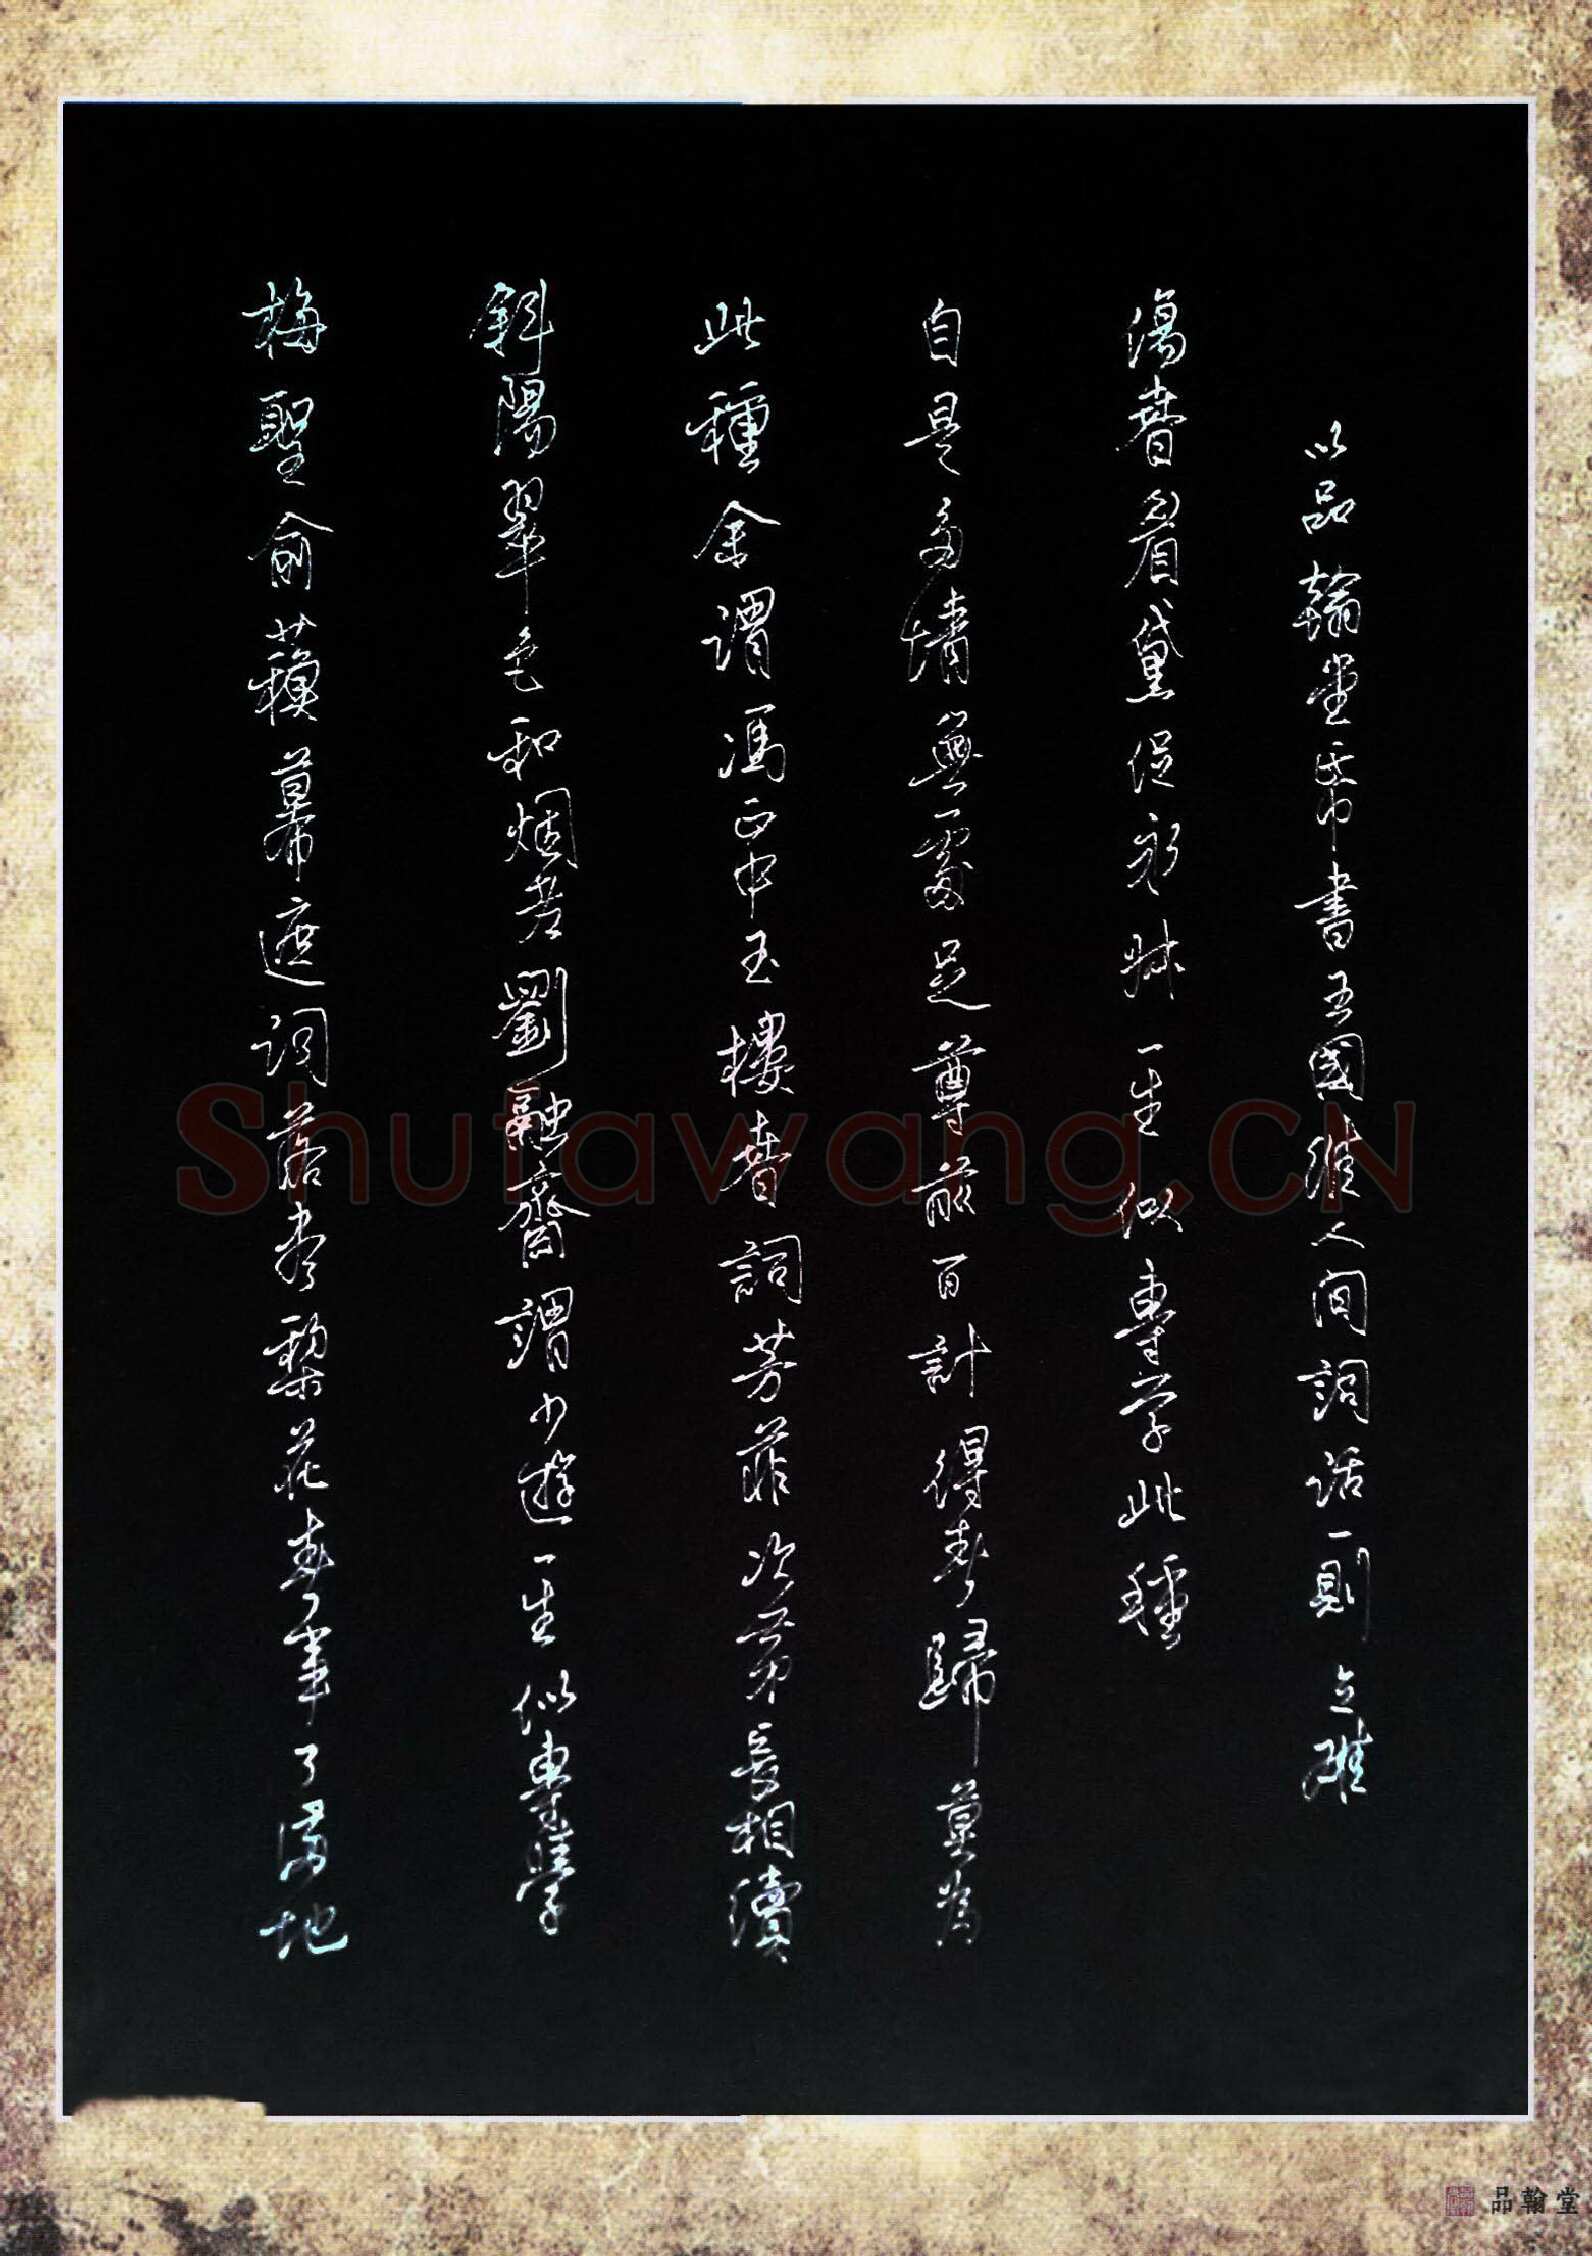 梅聖俞蘇幕遮詞落盡梨花春事了滿地
斜陽翠色和烟老劉融齋謂少遊一生似專學
此種余謂馮正中玉樓春詞芳菲次第長相續
自是多情無處足尊前百計得春歸莫為
傷春眉黛促永叔一生似專學此種
以品翰堂帋書王國維人間詞話一則 立
Shufawang.CN
品翰堂